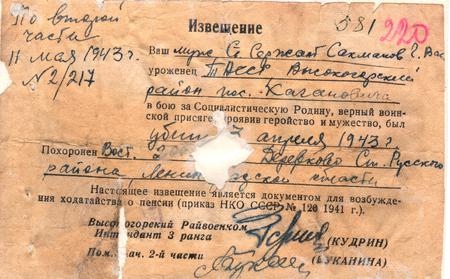 По второй
части
11 мая 1943 г
№ 2/217
Извещение
581
220
Ваш муж Ст Сержант Сахманов Г. Вас
уроженец ТАССР Высокогорский
район пос. Кагановича
в бою за Социалистическую Родину, верный воин-
ской присяге, проявив геройство и мужество, был
убит 7 апреля 1943 г
Похоронен Вост. Деревково Ст. Русского
района, Ленинградской области
Настоящее извещение является документом для возбужде-
ния ходатайства о пенсии (приказ НКО СССР № 120 1941 г.)
Высокогорский Райвоенком
Интендант 3 ранга (КУДРИН)
Пом. нач. 2-й части (БУКАНИНА)